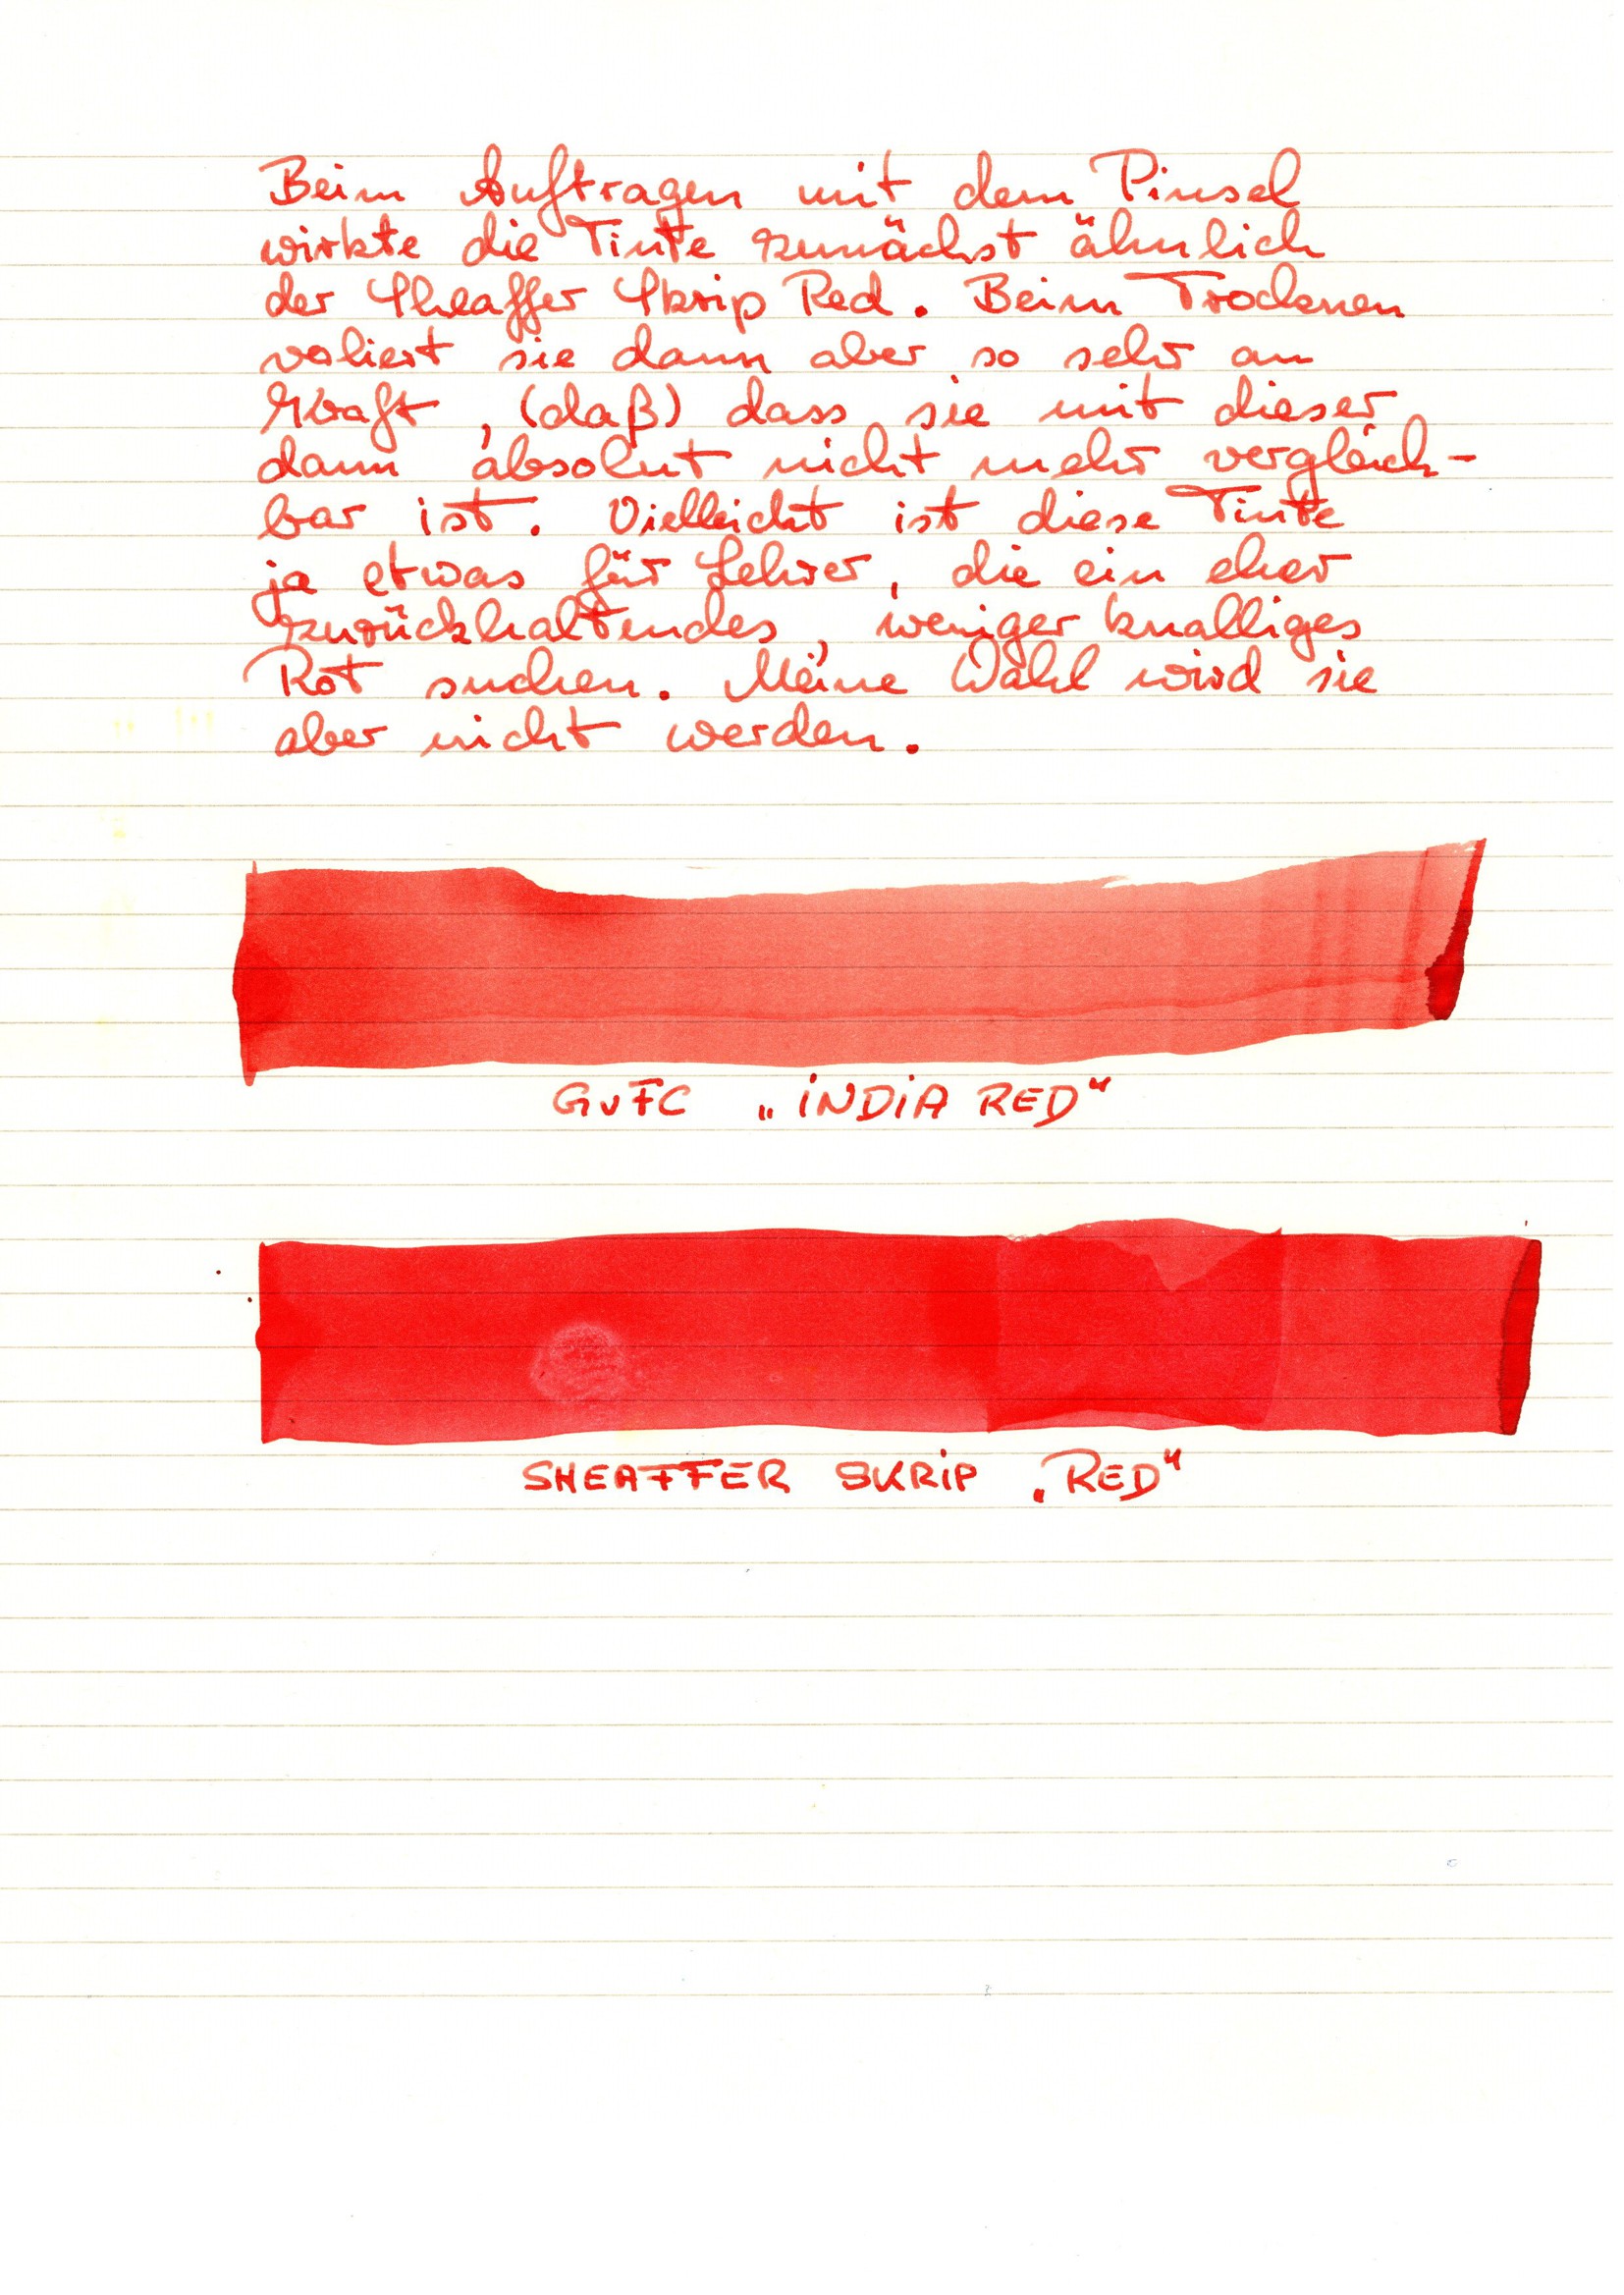 Beim Auftragen mit dem Pinsel
wirkte die Tinte zunächst ähnlich
der Sheaffer Skrip Red. Beim Trocknen
verliert sie dann aber so sehr an
Kraft, (daß) dass sie mit dieser
dann absolut nicht mehr vergleich-
bar ist. Vielleicht ist diese Tinte
ja etwas für Lehrer, die ein eher
zurückhaltendes, weniger knalliges
Rot suchen. Meine Wahl wird sie
aber nicht werden.
GvFC „INDIA RED“
SHEAFFER SKRIP „RED“